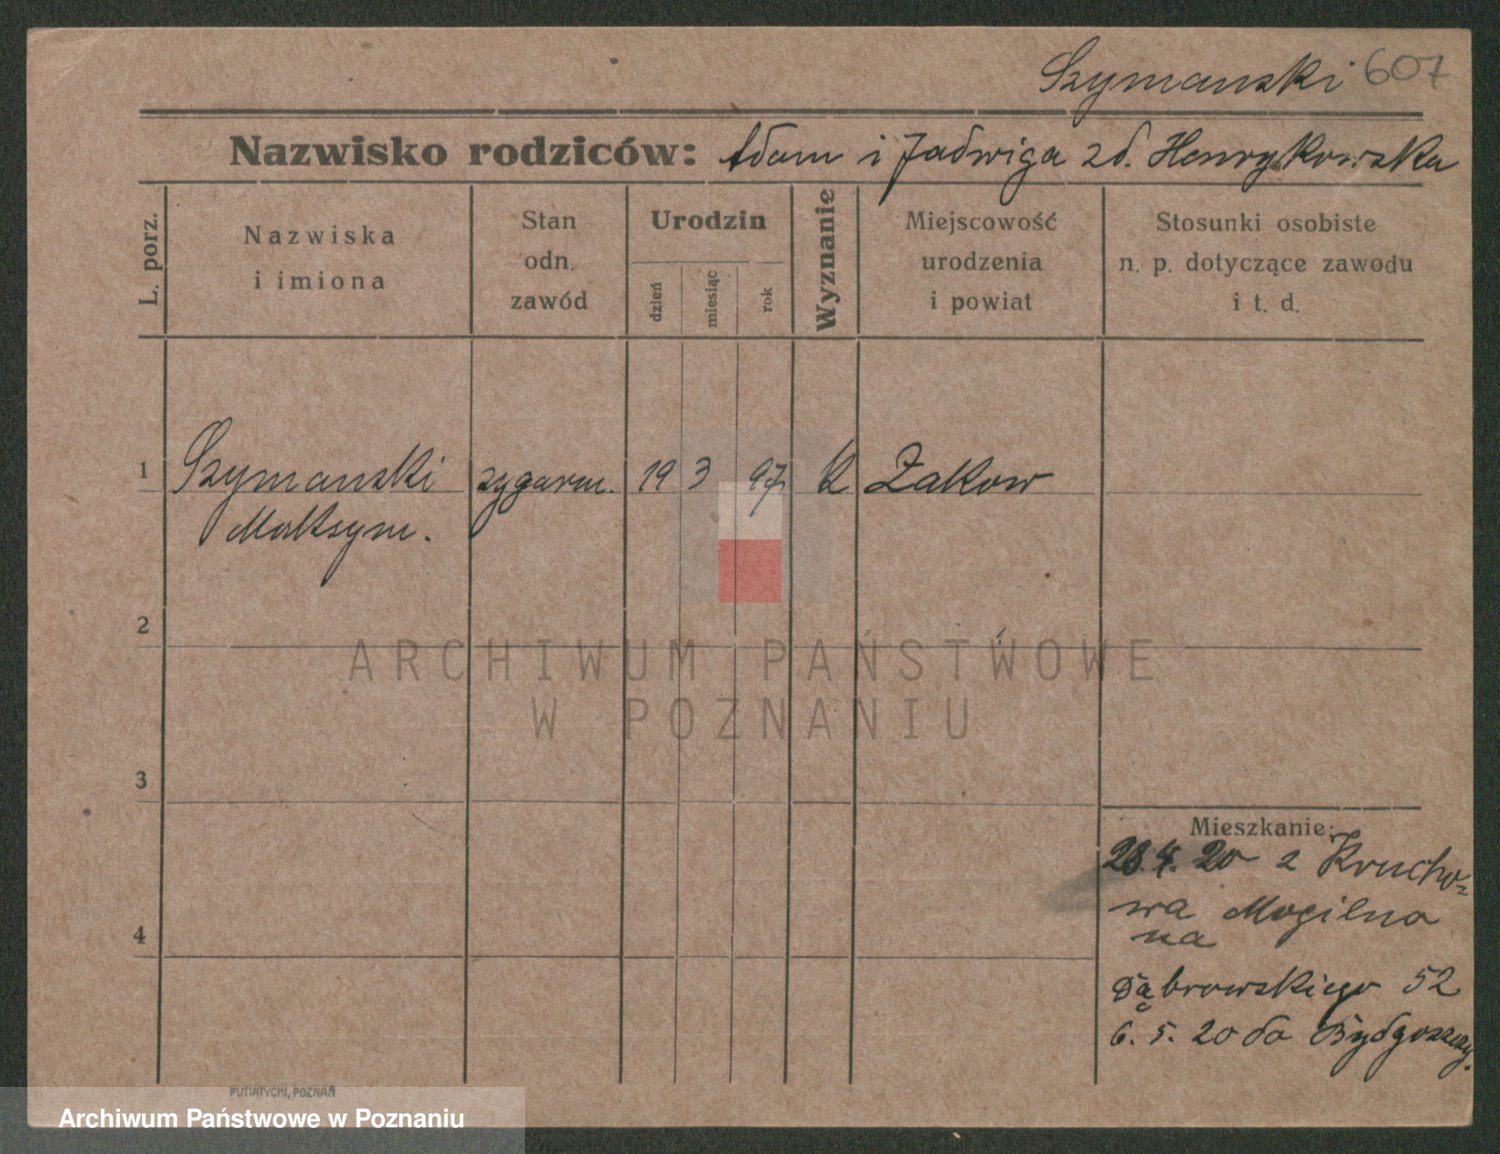 Szymanski 607
Nazwisko rodziców: Adam i Jadwiga zd. Henrykowska
L. porz.
Nazwiska
i imiona
Stan
odn.
zawód
Urodzin
dzień
miesiąc
rok
Wyznanie
Miejscowość
urodzenia
i powiat
Stosunki osobiste
n. p. dotyczące zawodu
i t. d.
1 Szymanski zygarm. 19 3 97 k Żakow
Maksym.
2
ARCHIWUM PAŃSTWOWE
W POZNANIU
3
Mieszkanie:
28.4.20 z Krucho-
wa Mogilno
na
4
Dąbrowskiego 52
6.5.20 do Bydgoszczy.
PUTIATYCKI, POZNAŃ
Archiwum Państwowe w Poznaniu